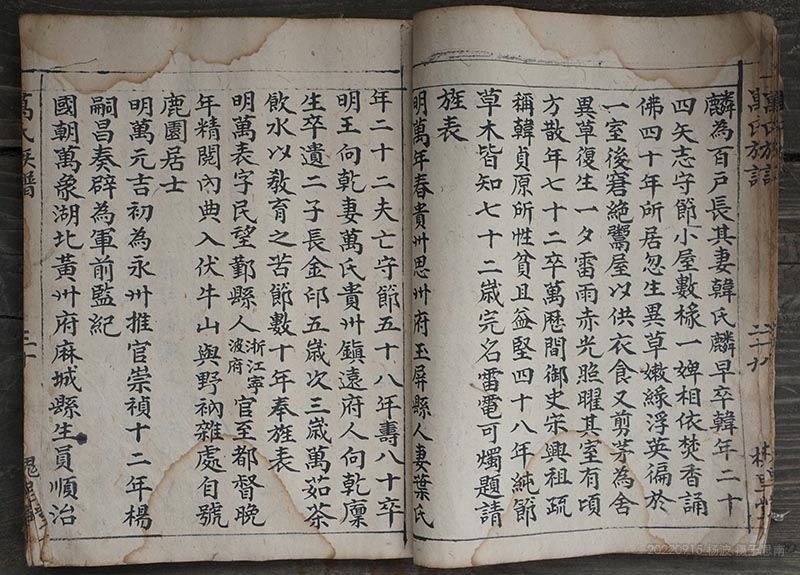 麟為百戶長其妻韓氏麟早卒韓年二十
四矢志守節小屋數椽一婢相依焚香誦
佛四十年所居忽生異草嫩綠浮英徧於
一室後窘絕鬻屋以供衣食又剪茅為舍
異草復生一夕雷雨赤光照曜其室有頃
方散年七十二卒萬厯間御史宋興祖疏
稱韓貞原所性貧且益堅四十八年純節
草木皆知七十二歲完名雷電可燭題請
旌表
明萬年春貴州思州府玉屏縣人妻葉氏
年二十二夫亡守節五十八年壽八十卒
明王向乾妻萬氏貴州鎮遠府人向乾廩
生卒遺二子長金邱五歲次三歲萬茹荼
飲水以敎育之苦節數十年奉旌表
明萬表字民望鄞縣人浙江寧波府官至都督晚
年精閱內典入伏牛山與野衲雜處自號
鹿園居士
明萬元吉初為永州推官崇禎十二年楊
嗣昌奏辟為軍前監紀
國朝萬象湖北黃州府麻城縣生員順治
萬氏族譜
三十
萬氏族譜
二十九
20220915 楊波 攝于思南